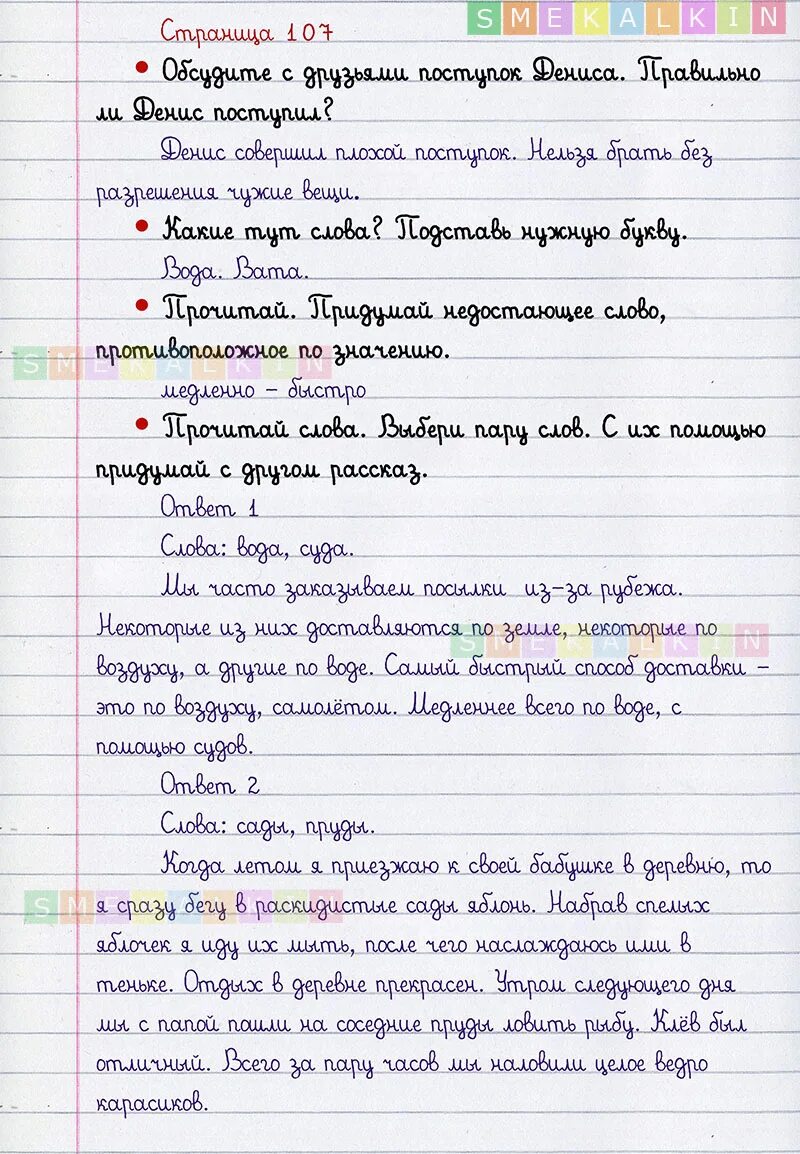 SMEKALKIN
Страница 107
• Обсудите с друзьями поступок Дениса. Правильно
ли Денис поступил?
Денис совершил плохой поступок. Нельзя брать без
разрешения чужие вещи.
• Какие тут слова? Подставь нужную букву.
Вода. Вата.
• Прочитай. Придумай недостающее слово,
противоположное по значению.
SMEKALKIN
медленно – быстро
• Прочитай слова. Выбери пару слов. С их помощью
придумай с другом рассказ.
Ответ 1
Слова: вода, суда.
Мы часто заказываем посылки из-за рубежа.
Некоторые из них доставляются по земле, некоторые по
SMEKALKIN
воздуху, а другие по воде. Самый быстрый способ доставки –
это по воздуху, самолётом. Медленнее всего по воде, с
помощью судов.
Ответ 2
Слова: сады, пруды.
Когда летом я приезжаю к своей бабушке в деревню, то
я сразу бегу в раскидистые сады яблонь. Набрав спелых
SMEKALKIN
яблочек я иду их мыть, после чего наслаждаюсь ими в
теньке. Отдых в деревне прекрасен. Утром следующего дня
мы с папой пошли на соседние пруды ловить рыбу. Клёв был
отличный. Всего за пару часов мы наловили целое ведро
карасиков.